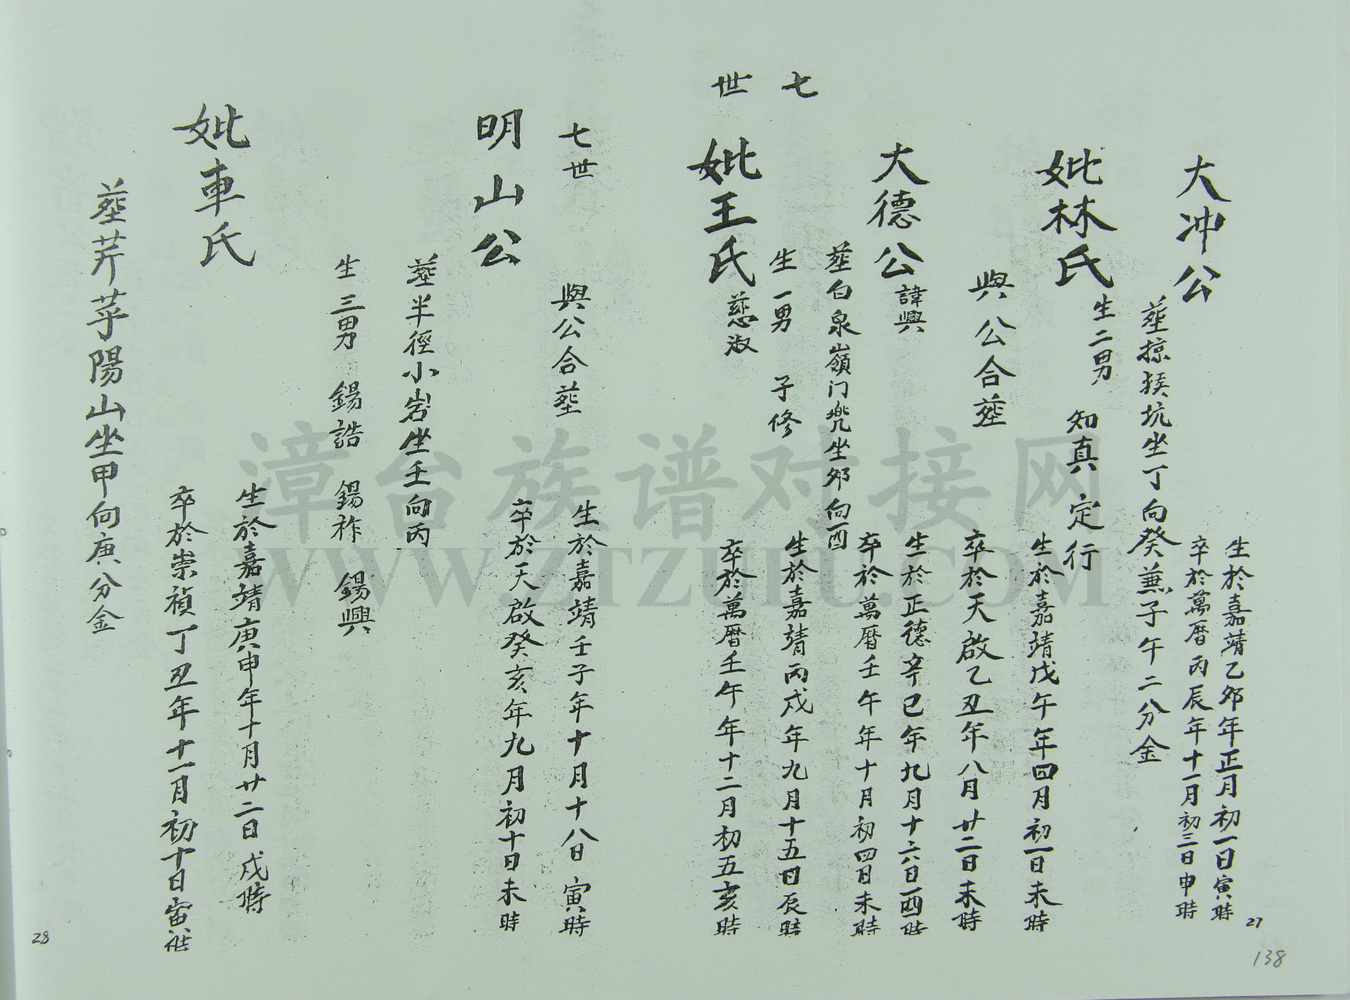 大冲公
生於嘉靖乙卯年正月初一日寅時
卒於萬曆丙辰年十一月初三日申時
塟掠挨坑坐丁向癸兼子午二分金
妣林氏
生二男 知真 定行
生於嘉靖戊午年四月初一日未時
與公合塟
卒於天啟乙丑年八月廿二日未時
大德公
諱興
生於正德辛巳年九月十六日酉時
卒於萬曆壬午年十月初四日未時
塟白泉嶺门兠坐卯向酉
七世
妣王氏
慈淑
生一男 子修
生於嘉靖丙戌年九月十五日辰時
卒於萬曆壬午年十二月初五亥時
七世
與公合塟
生於嘉靖壬子年十月十八日寅時
明山公
卒於天啟癸亥年九月初十日未時
塟半徑小岩坐壬向丙
生三男 錫誥 錫祚 錫興
妣車氏
生於嘉靖庚申年十月廿二日戌時
卒於崇禎丁丑年十一月初十日寅時
塟芹芓陽山坐甲向庚分金
27
28
138
漳台族谱对接网
WWW.ZTZUPU.COM